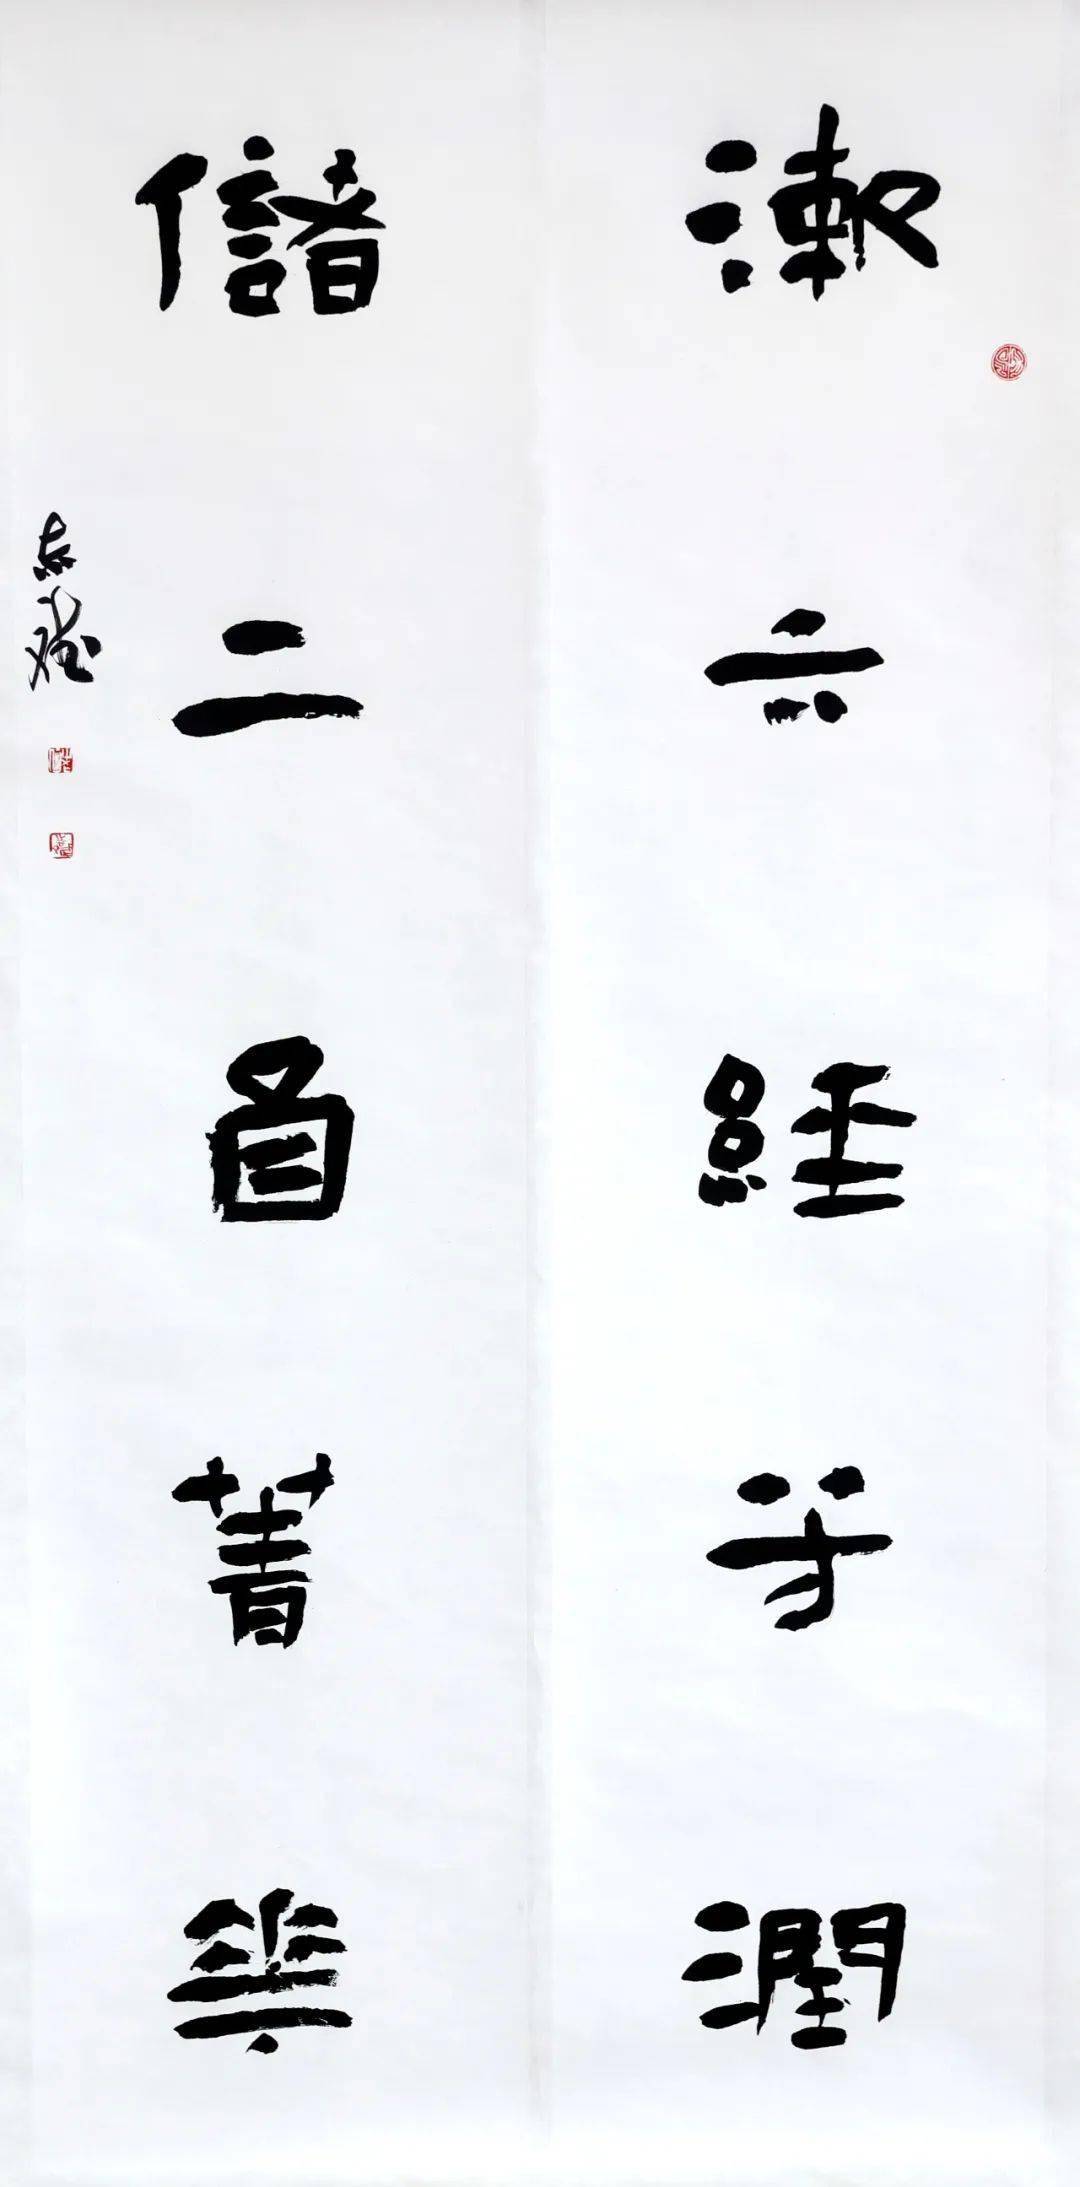 漱六經芳潤
儲二酉菁華
志斌